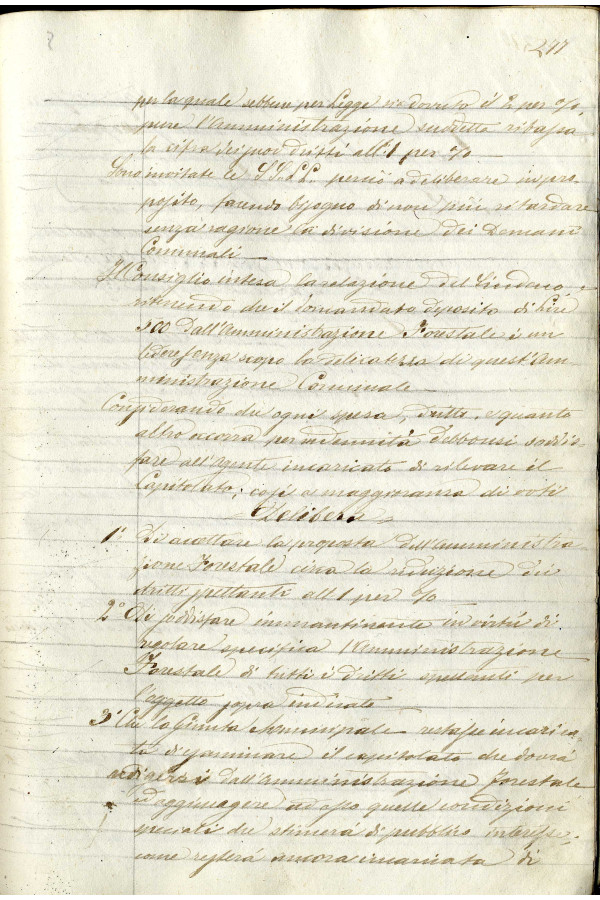 277
per la quale sebbene per Legge va dovuto il 2 per %
pure l'Amministrazione suddetta ribassa
la cifra dei suoi dritti all'1 per %
Sono invitate le SS.LL. perciò a deliberare in pro=
posito, facendo bisogno di non più ritardare
senza ragione la divisione dei Demani
Comunali
Il Consiglio intesa la relazione del Sindaco,
ritenendo che il domandato deposito di Lire
500 dall'Amministrazione Forestale è un
ledere senza scopo la delicatezza di quest'Am=
ministrazione Comunale
Considerando che ogni spesa, dritto, e quanto
altro occorra per indennità debbonsi soddis=
fare all'Agente incaricato di rilevare il
Capitolato; così a maggioranza di voti
Delibera
1° Di accettare la proposta dell'Amministra=
zione Forestale circa la riduzione dei
dritti spettanti all'1 per %
2° Di soddisfare immantinente in virtù di
regolare specifica l'Amministrazione
Forestale di tutti i dritti spettanti per
l'oggetto sopra indicato
3° Che la Giunta Municipale restasse incarica=
ta di esaminare il capitolato che dovrà
redigersi dall'Amministrazione Forestale
ed aggiungere ad esso quelle condizioni
speciali che stimerà di pubblico interesse,
come resterà ancora incaricata di